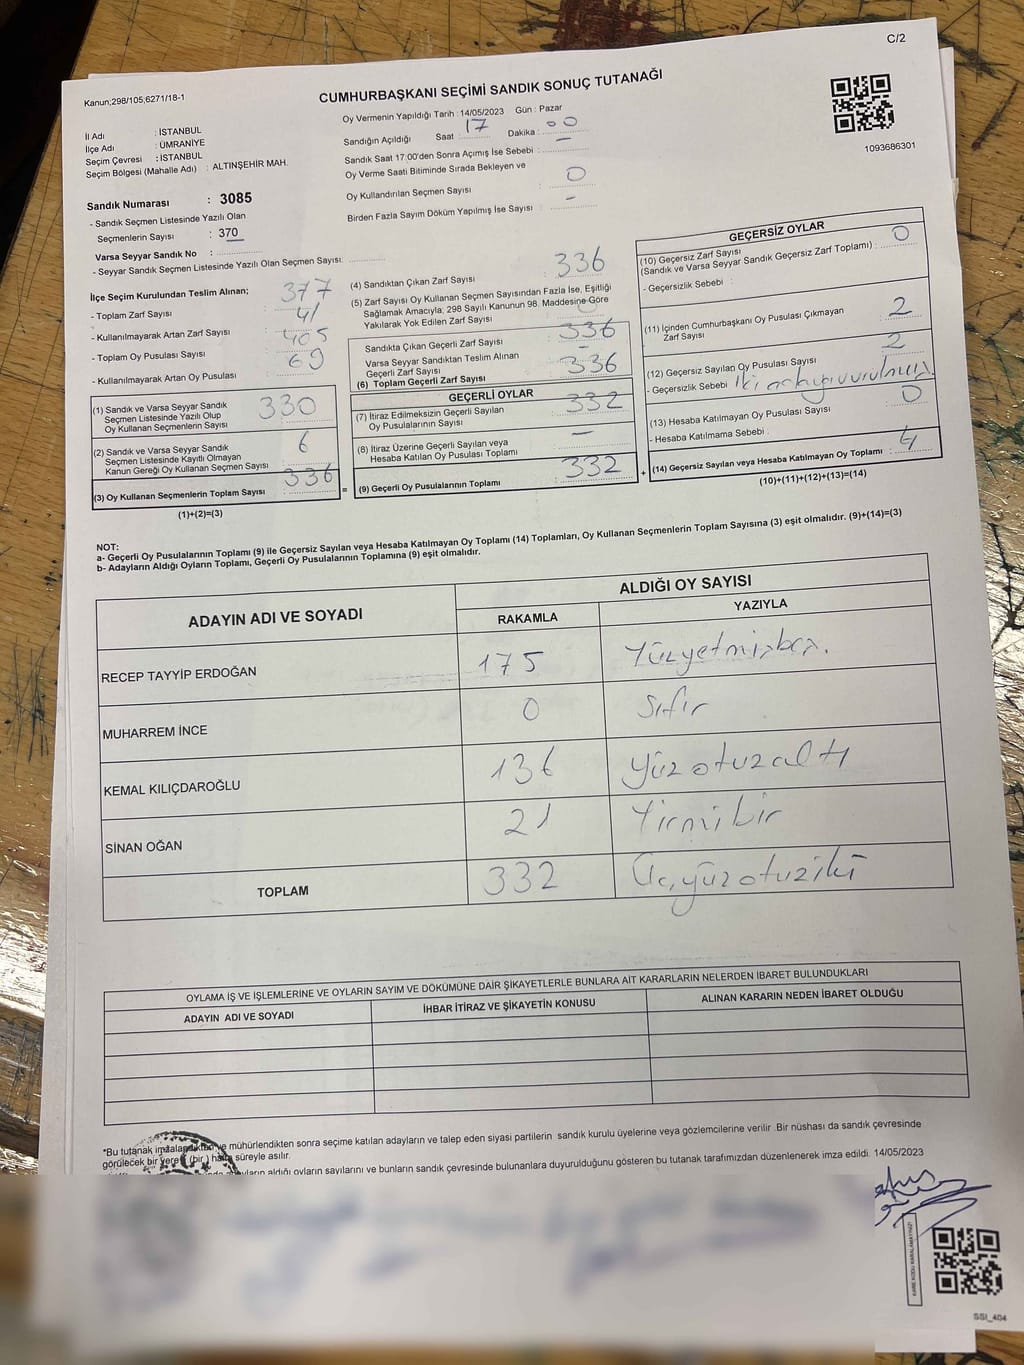 C/2
Kanun;298/105;6271/18-1
CUMHURBAŞKANI SEÇİMİ SANDIK SONUÇ TUTANAĞI
İl Adı : İSTANBUL
İlçe Adı : ÜMRANİYE
Seçim Çevresi : İSTANBUL
Seçim Bölgesi (Mahalle Adı) : ALTINŞEHİR MAH.
Oy Vermenin Yapıldığı Tarih : 14/05/2023 Gün : Pazar
Sandığın Açıldığı Saat : 17 Dakika : 00
Sandık Saat 17:00'den Sonra Açımış İse Sebebi : -
Oy Verme Saati Bitiminde Sırada Bekleyen ve
Oy Kullandırılan Seçmen Sayısı : 0
Birden Fazla Sayım Döküm Yapılmış İse Sayısı : -
1093686301
Sandık Numarası : 3085
- Sandık Seçmen Listesinde Yazılı Olan
Seçmenlerin Sayısı : 370
Varsa Seyyar Sandık No :
- Seyyar Sandık Seçmen Listesinde Yazılı Olan Seçmen Sayısı:
İlçe Seçim Kurulundan Teslim Alınan;
- Toplam Zarf Sayısı : 377
- Kullanılmayarak Artan Zarf Sayısı : 41
- Toplam Oy Pusulası Sayısı : 405
- Kullanılmayarak Artan Oy Pusulası : 69
(1) Sandık ve Varsa Seyyar Sandık
Seçmen Listesinde Yazılı Olup
Oy Kullanan Seçmenlerin Sayısı : 330
(2) Sandık ve Varsa Seyyar Sandık
Seçmen Listesinde Kayıtlı Olmayan
Kanun Gereği Oy Kullanan Seçmen Sayısı : 6
(3) Oy Kullanan Seçmenlerin Toplam Sayısı : 336
(1)+(2)=(3)
(4) Sandıktan Çıkan Zarf Sayısı : 336
(5) Zarf Sayısı Oy Kullanan Seçmen Sayısından Fazla İse, Eşitliği
Sağlamak Amacıyla; 298 Sayılı Kanunun 98. Maddesine Göre
Yakılarak Yok Edilen Zarf Sayısı
Sandıkta Çıkan Geçerli Zarf Sayısı : 336
Varsa Seyyar Sandıktan Teslim Alınan
Geçerli Zarf Sayısı : -
(6) Toplam Geçerli Zarf Sayısı : 336
GEÇERLİ OYLAR
(7) İtiraz Edilmeksizin Geçerli Sayılan
Oy Pusulalarının Sayısı : 332
(8) İtiraz Üzerine Geçerli Sayılan veya
Hesaba Katılan Oy Pusulası Toplamı : -
= (9) Geçerli Oy Pusulalarının Toplamı : 332
GEÇERSİZ OYLAR
(10) Geçersiz Zarf Sayısı
(Sandık ve Varsa Seyyar Sandık Geçersiz Zarf Toplamı) : 0
- Geçersizlik Sebebi :
(11) İçinden Cumhurbaşkanı Oy Pusulası Çıkmayan
Zarf Sayısı : 2
(12) Geçersiz Sayılan Oy Pusulası Sayısı : 2
- Geçersizlik Sebebi : İki adaya vurulmuş
(13) Hesaba Katılmayan Oy Pusulası Sayısı : 0
- Hesaba Katılmama Sebebi :
+ (14) Geçersiz Sayılan veya Hesaba Katılmayan Oy Toplamı : 4
(10)+(11)+(12)+(13)=(14)
NOT:
a- Geçerli Oy Pusulalarının Toplamı (9) ile Geçersiz Sayılan veya Hesaba Katılmayan Oy Toplamı (14) Toplamları, Oy Kullanan Seçmenlerin Toplam Sayısına (3) eşit olmalıdır. (9)+(14)=(3)
b- Adayların Aldığı Oyların Toplamı, Geçerli Oy Pusulalarının Toplamına (9) eşit olmalıdır.
ADAYIN ADI VE SOYADI
ALDIĞI OY SAYISI
RAKAMLA YAZIYLA
RECEP TAYYİP ERDOĞAN 175 Yüzyetmişbeş.
MUHARREM İNCE 0 Sıfır
KEMAL KILIÇDAROĞLU 136 Yüzotuzaltı
SİNAN OĞAN 21 Yirmibir
TOPLAM 332 Üçyüzotuziki
OYLAMA İŞ VE İŞLEMLERİNE VE OYLARIN SAYIM VE DÖKÜMÜNE DAİR ŞİKAYETLERLE BUNLARA AİT KARARLARIN NELERDEN İBARET BULUNDUKLARI
ADAYIN ADI VE SOYADI İHBAR İTİRAZ VE ŞİKAYETİN KONUSU ALINAN KARARIN NEDEN İBARET OLDUĞU
*Bu tutanak imzalandıktan ve mühürlendikten sonra seçime katılan adayların ve talep eden siyasi partilerin sandık kurulu üyelerine veya gözlemcilerine verilir .Bir nüshası da sandık çevresinde
görülecek bir yere 1 (bir) hafta süreyle asılır.
aldığı oyların sayılarını ve bunların sandık çevresinde bulunanlara duyurulduğunu gösteren bu tutanak tarafımızdan düzenlenerek imza edildi. 14/05/2023
KARE KODU KARALAMAYINIZ!
SSI_404